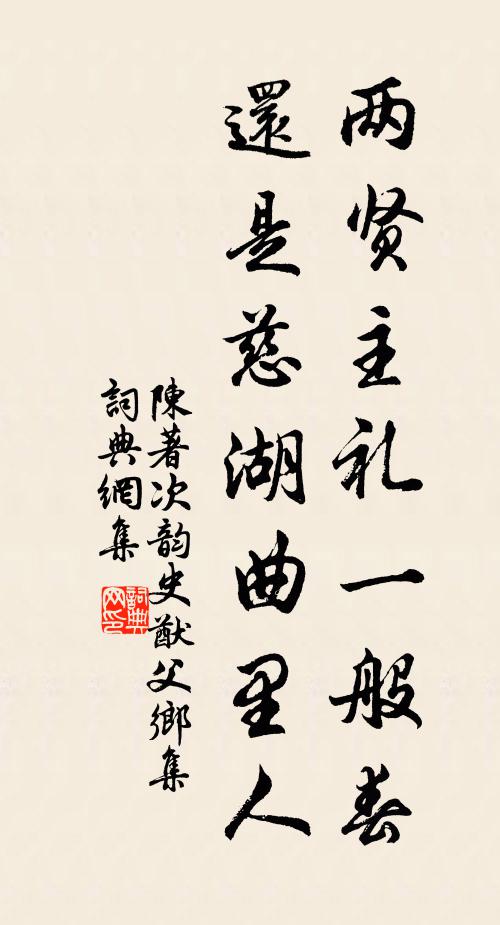 两贤主礼一般春
還是慈湖曲里人
陳著次韵史猷父鄉集
詞典網集
詞典网印